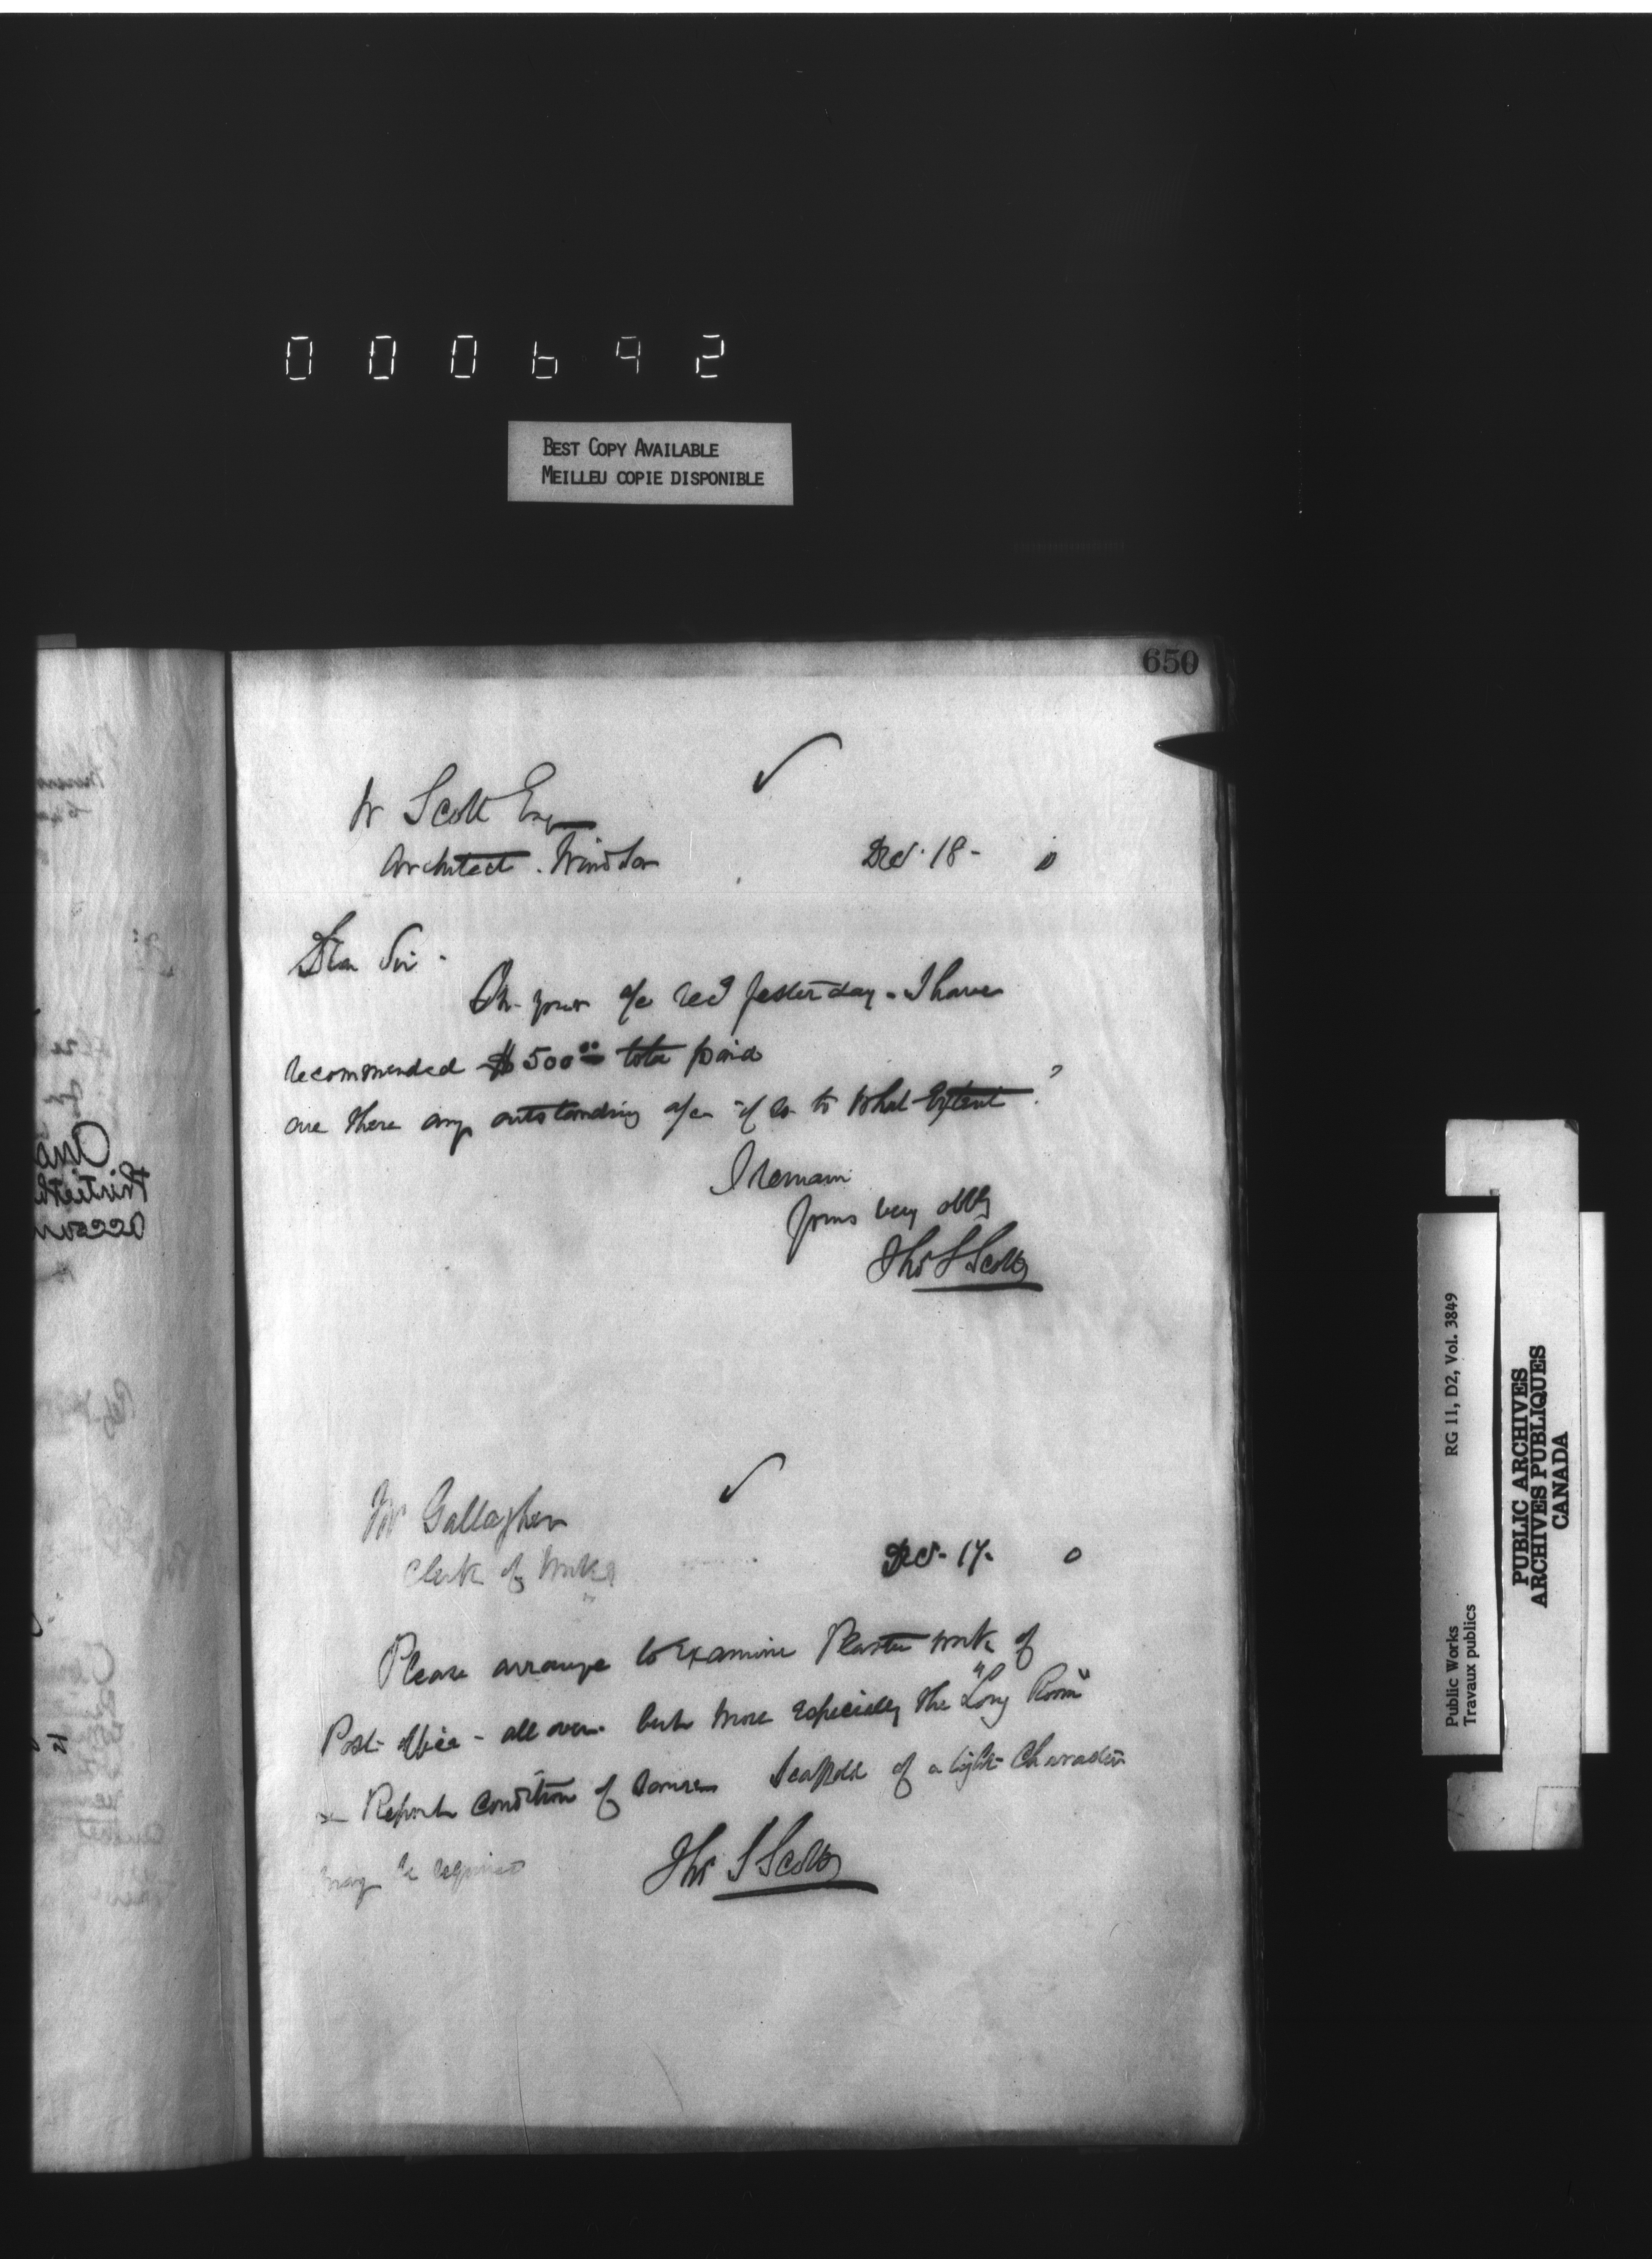 000692
BEST COPY AVAILABLE
MEILLEU COPIE DISPONIBLE
650
W Scott Esq
Architect. Windsor
Dec. 18-
Dear Sir -
On your a/c recd yesterday - I have
recommended $500.00 to be paid
are there any outstanding a/cs if so to what Extent?
I remain
Yours very obtly
Thos S Scott
Mr Gallagher
Clerk of Works
Dec - 17.
Please arrange to Examine Plaster work of
Post office - all over. but more Especially the "Long Room"
& Report Condition of same Scaffold of a light Character
may be required
Thos S Scott
Public Works
Travaux publics
RG 11, D2, Vol. 3849
PUBLIC ARCHIVES
ARCHIVES PUBLIQUES
CANADA